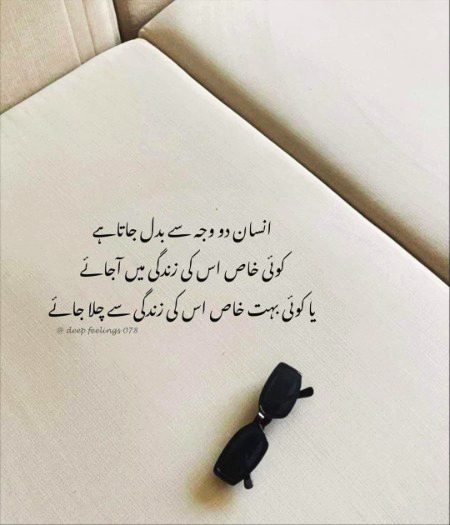 انسان دو وجہ سے بدل جاتا ہے
کوئی خاص اس کی زندگی میں آجائے
یا کوئی بہت خاص اس کی زندگی سے چلا جائے
@ deep feelings 078